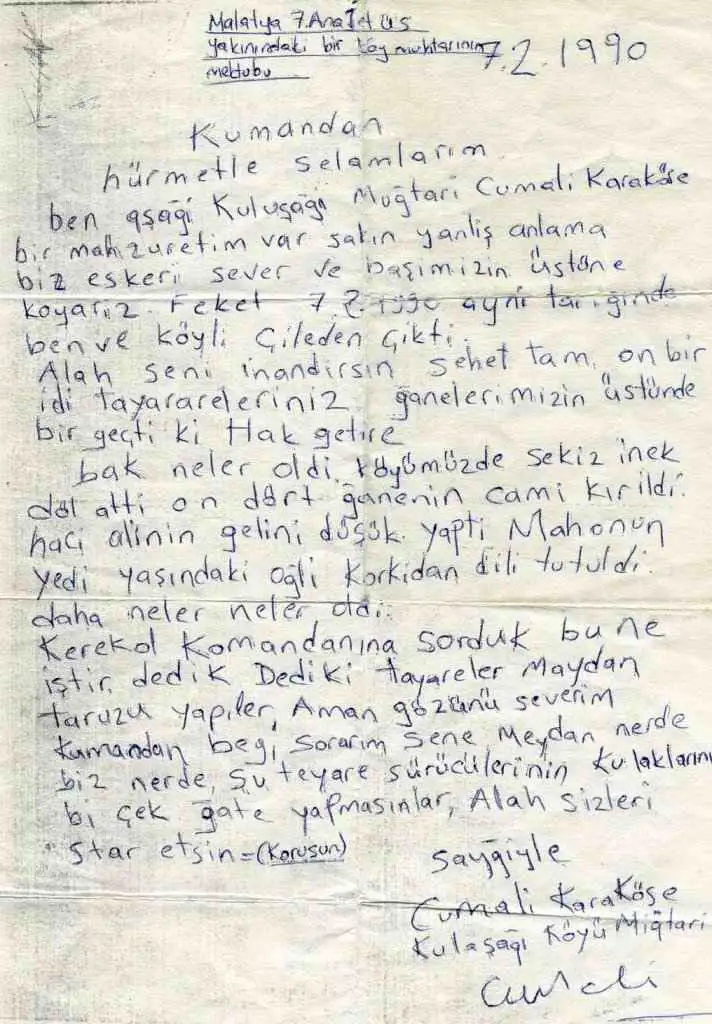 Malatya 7.Ana Jet üs
yakınındaki bir köy muhtarının
mektubu
7.2.1990
Kumandan
hürmetle selamlarım
ben aşaği Kuluşağı Muğtari Cumali Karaköse
bir mahzuretim var sakın yanliş anlama
biz eskeri sever ve başimizin üstüne
koyariz. Feket 7.2.1990 ayni tariğinde
ben ve köyli Çileden Çikti.
Alah seni inandirsin sehet tam on bir
idi tayarareleriniz ğanelerimizin üstünde
bir geçti ki Hak getire
bak neler oldi. köyümüzde sekiz inek
döl atti on dört ğanenin cami kırildi.
haci alinin gelini düşük yapti Mahonun
yedi yaşındaki oğli korkidan dili tutuldi.
daha neler neler oldi.
Kerekol Komandanına sorduk bu ne
iştir dedik Dediki tayareler Maydan
taruzu yapiler, Aman gözünü severim
kumandan begi sorarim sene Meydan nerde
biz nerde, şu teyare sürücülerinin kulaklarını
bi çek ğate yapmasınlar, Alah sizleri
star etsin=(Korusun)
sayğiyle
Cumali KaraKöşe
Kulaşağı Köyü Miğtari
Cumali